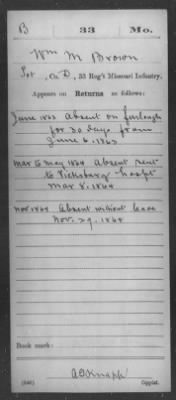 B 33 Mo.
Wm M Brown
Pvt, Co D, 33 Reg't Missouri Infantry.
Appears on Returns as follows:
June 1863 Absent on furlough
for 30 days from
June 6, 1863
Mar to May 1864 Absent sent
to Vicksburg hospt
Mar 8, 1864
Nov 1864 Absent without leave
Nov. 29, 1864
Book mark:
(546)
A O Knapp
Copyist.